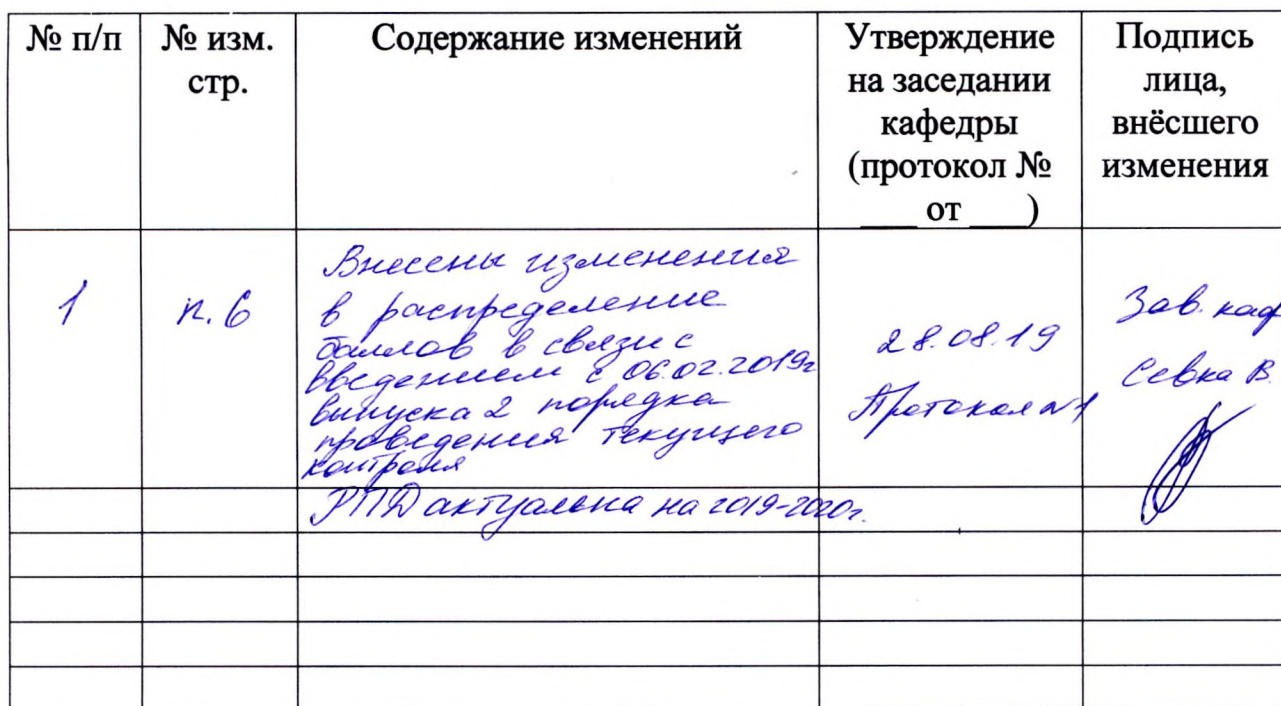 № п/п
№ изм.
стр.
Содержание изменений
Утверждение
на заседании
кафедры
(протокол №
____ от ____)
Подпись
лица,
внёсшего
изменения
1
п. 6
Внесены изменения
в распределение
баллов в связи с
введением с 06.02.2019г
выпуска 2 порядка
проведения текущего
контроля
РПД актуальна на 2019-2020г.
28.08.19
Протокол №1
Зав. каф
Севка В.